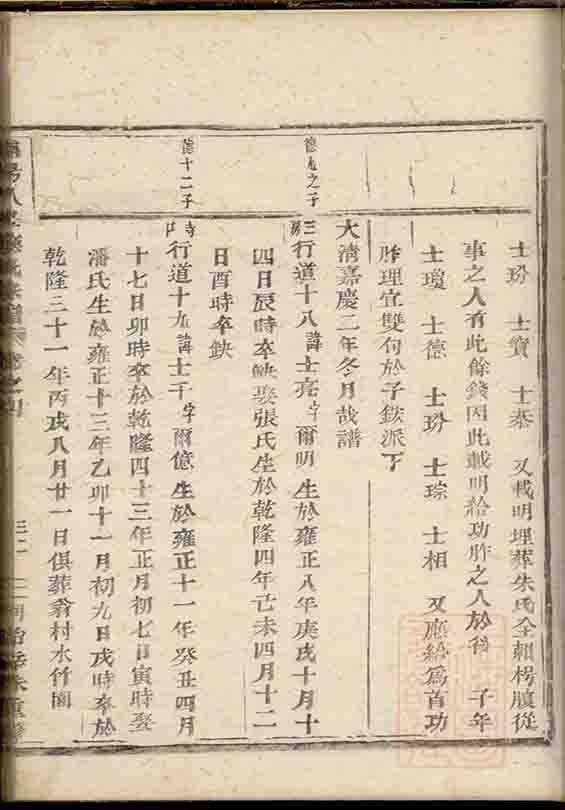 士玢　士寶　士恭　又載明埋葬朱氏全賴楊膑從
事之人有此餘錢因此載明給功胙之人於後　子年
士瓊　士德　士玢　士琮　士相　又應給為首功
胙理宜雙旬於子錢派丁
大清嘉慶二年冬月哉譜
德九之子
三房行道十八諱士亮字爾明生於雍正八年庚戌十月十
四日辰時卒缺娶張氏生於乾隆四年己未四月十二
日酉時卒缺
德十二子
行道十九諱士千字爾億生於雍正十一年癸丑四月
十七日卯時卒於乾隆四十三年正月初七日寅時娶
潘氏生於雍正十三年乙卯十一月初九日戌時卒於
乾隆三十一年丙戌八月廿一日俱葬翁村水竹園